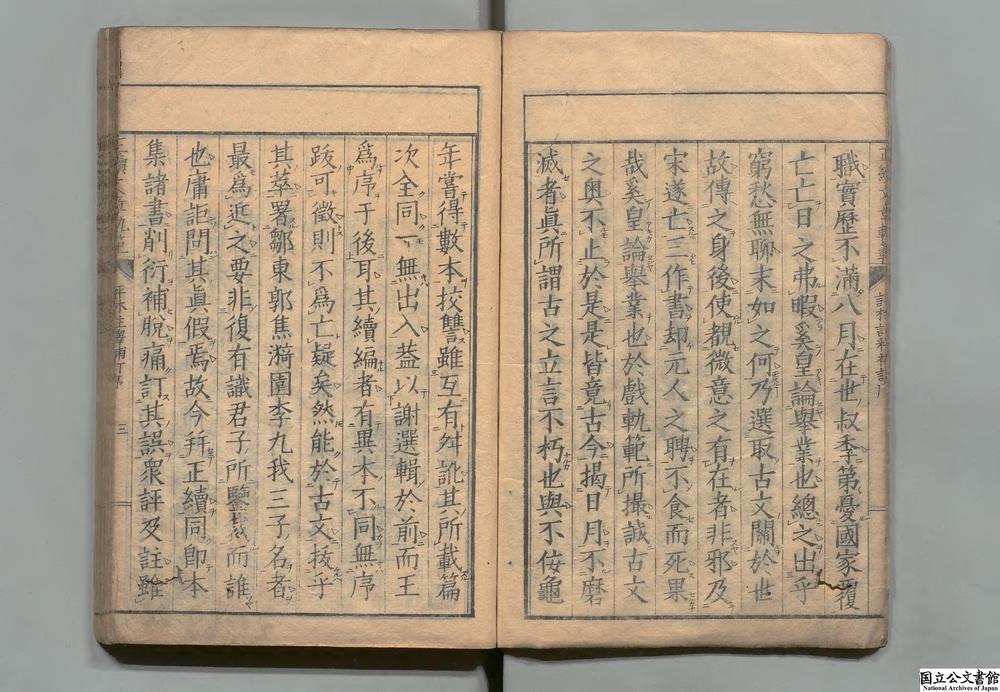 職實歷不滿八月在世叔季第憂國家覆
亡亡日之弗暇奚皇論舉業也總之出乎
窮愁無聊末如之何乃選取古文關於世
故傳之身後使覩微意之有在者非邪及
宋遂亡三作書却元人之聘不食而死果
哉奚皇論舉業也於戲軌範所撮誠古文
之奥不止於是是皆竟古今揭日月不磨
滅者眞所謂古之立言不朽也與不佞龜
年嘗得數本挍讐雖互有舛訛其所載篇
次全同一無出入蓋以謝選輯於前而王
爲序于後耳其續編者有異本不同無序
跋可徵則不爲亡疑矣然能於古文拔乎
其萃署鄒東郭焦漪園李九我三子名者
最爲近之要非復有識君子所鑒裁而誰
也庸詎問其眞假焉故今幷正續同卽本
集諸書削衍補脫痛訂其誤衆評及註雖
三
國立公文書館
National Archives of Japan